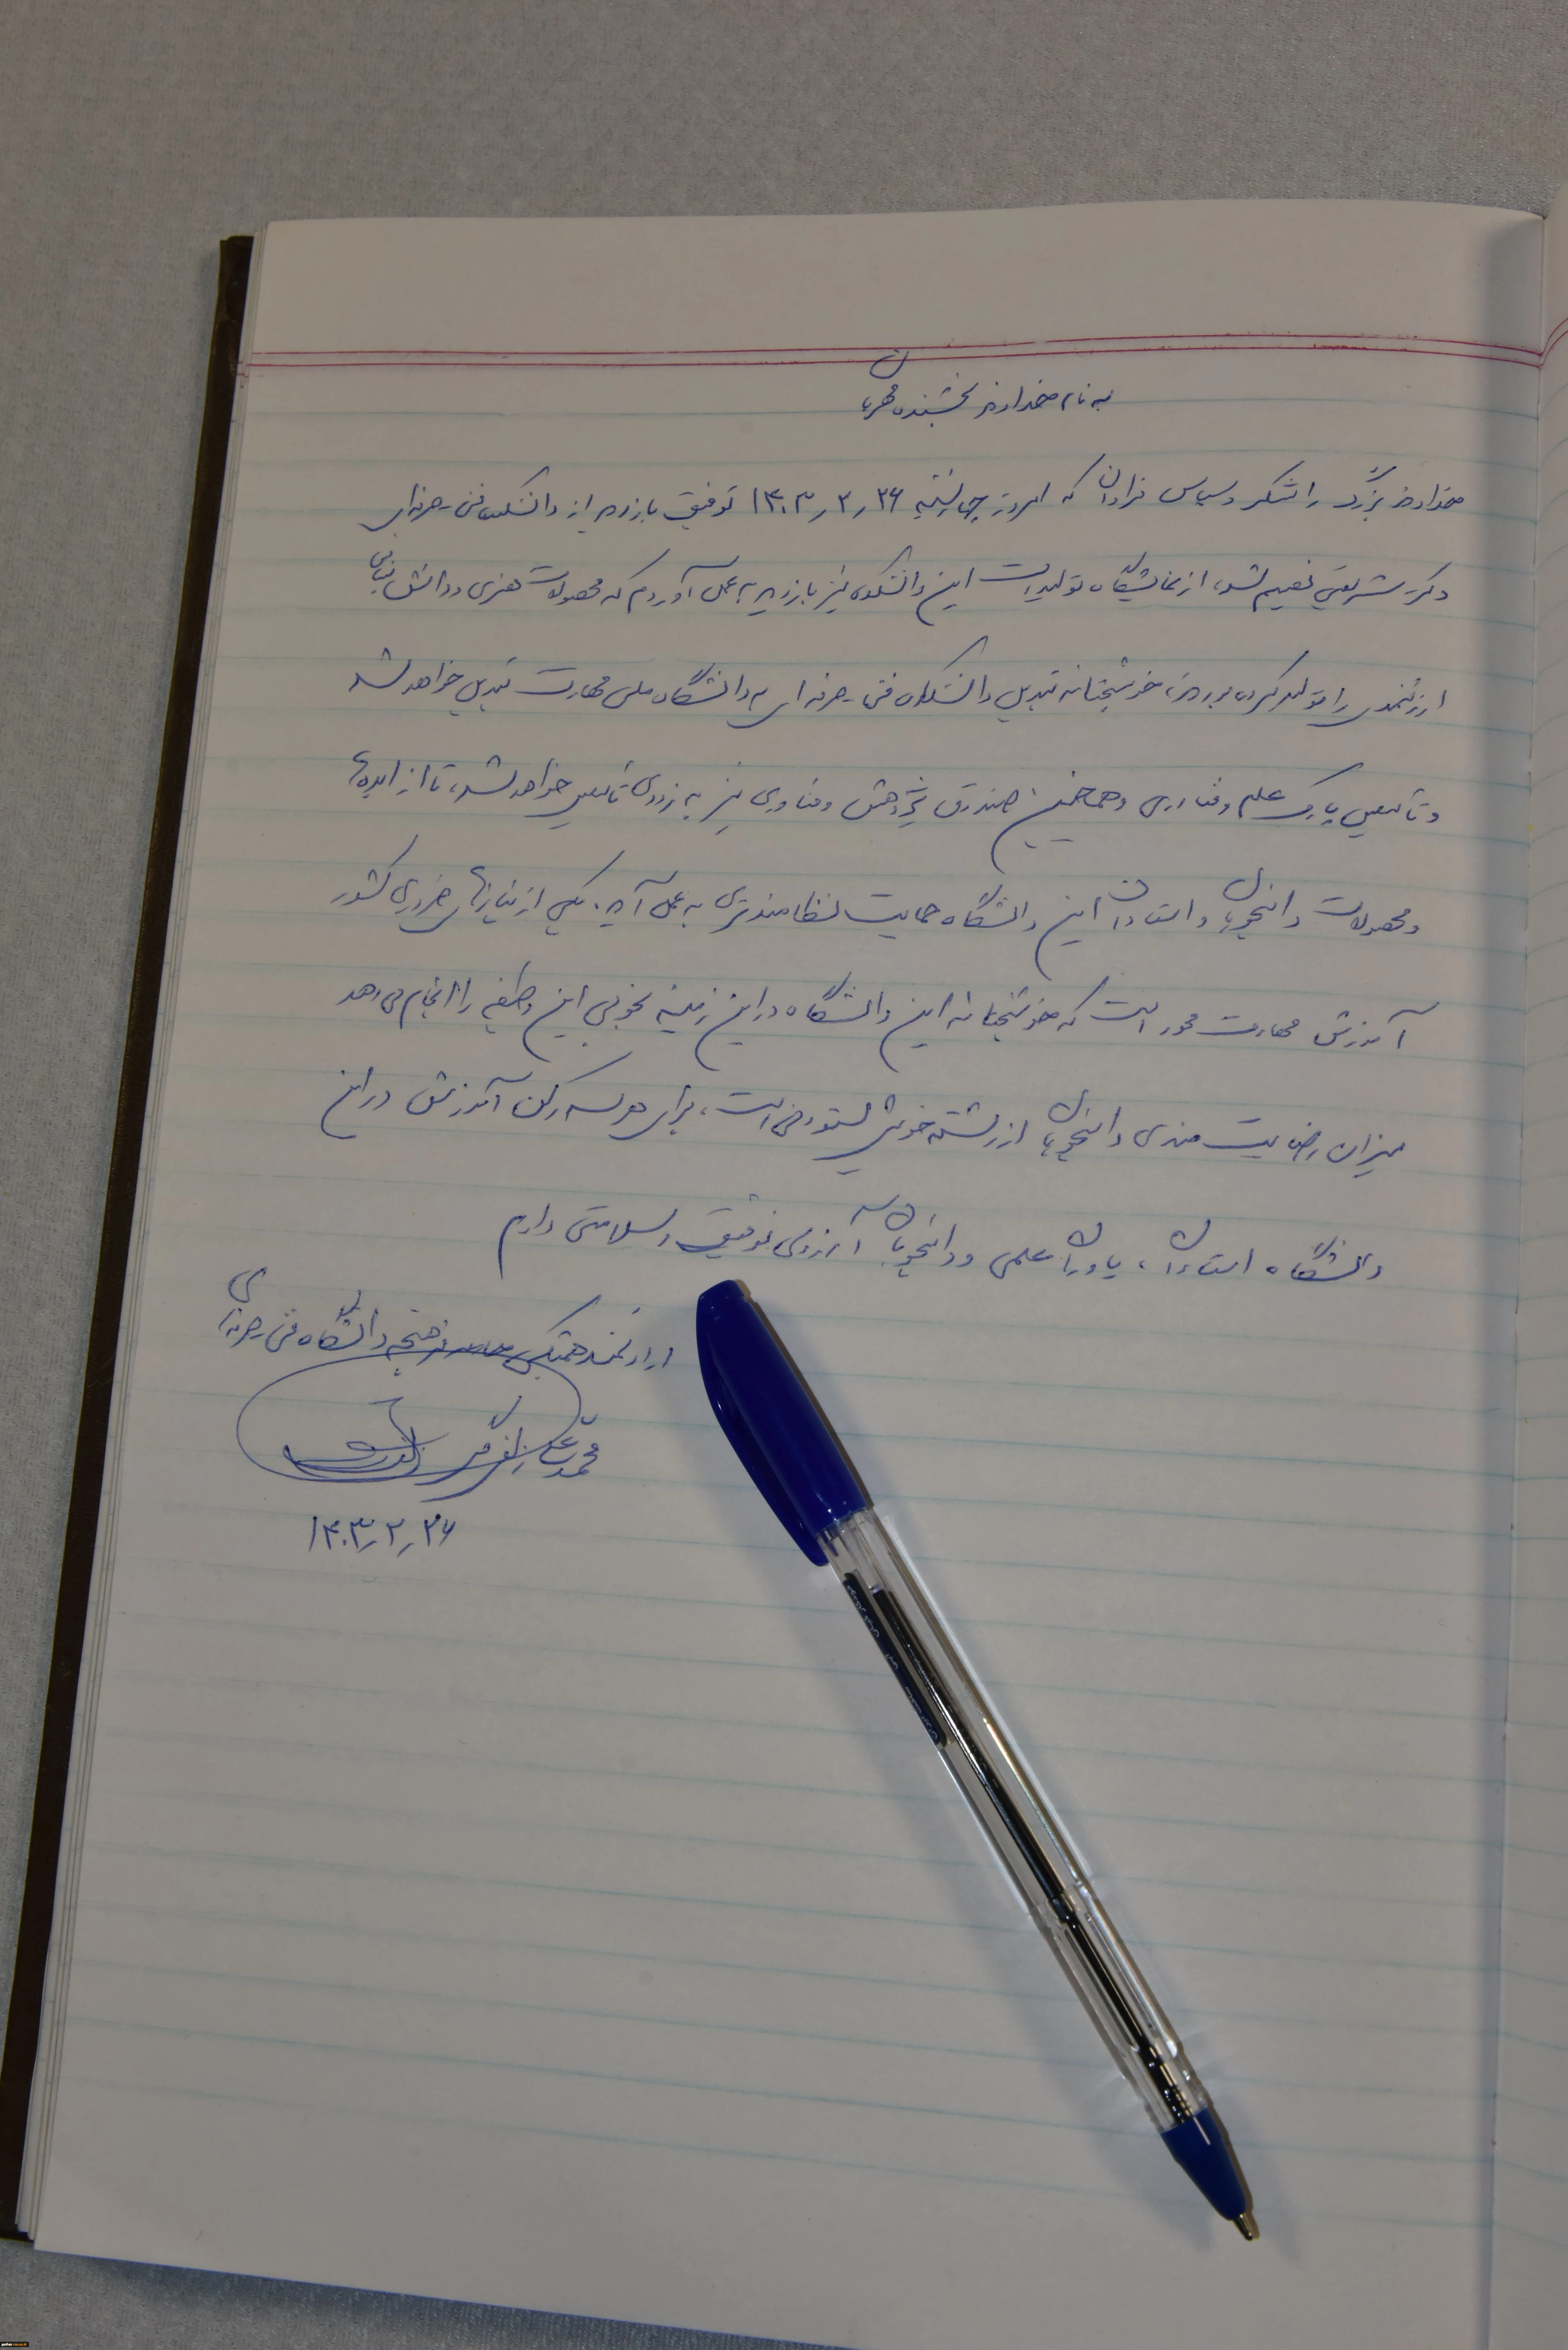 به نام خداوند بخشنده مهربان
خداوند بزرگ را شکر و سپاس فراوان که امروز چهارشنبه ۱۴۰۳٫۲٫۲۶ توفیق بازدید از دانشکده فنی حرفه‌ای
دکتر شریعتی نصیبم شد، از نمایشگاه تولیدات این دانشکده نیز بازدید به عمل آوردم که محصولات هنری و دانش بنیان
ارزشمندی را تولید کرده بودند، خوشبختانه تبدیل دانشکده فنی حرفه‌ای به دانشگاه ملی مهارت تبدیل خواهد شد
و تأسیس پارک علم و فناوری و همچنین صندوق پژوهش و فناوری نیز به زودی تأسیس خواهد شد، تا از ایده‌ها
و محصولات دانشجویان و استادان این دانشگاه حمایت نظامندتری به عمل آید. یکی از نیازهای ضروری کشور
آموزش مهارت محور است که خوشبختانه این دانشگاه در این زمینه بخوبی این وظیفه را انجام می‌دهد
میزان رضایت مندی دانشجویان از رشته خویش ستودنی است، برای هر سه رکن آموزش در این
دانشگاه استادان، یاوران علمی و دانشجویان آرزوی توفیق و سلامتی دارم
ارادتمند همیشگی فرهنگ دانشگاه فنی حرفه‌ای
محمدعلی زلفی گل
۱۴۰۳٫۲٫۲۶